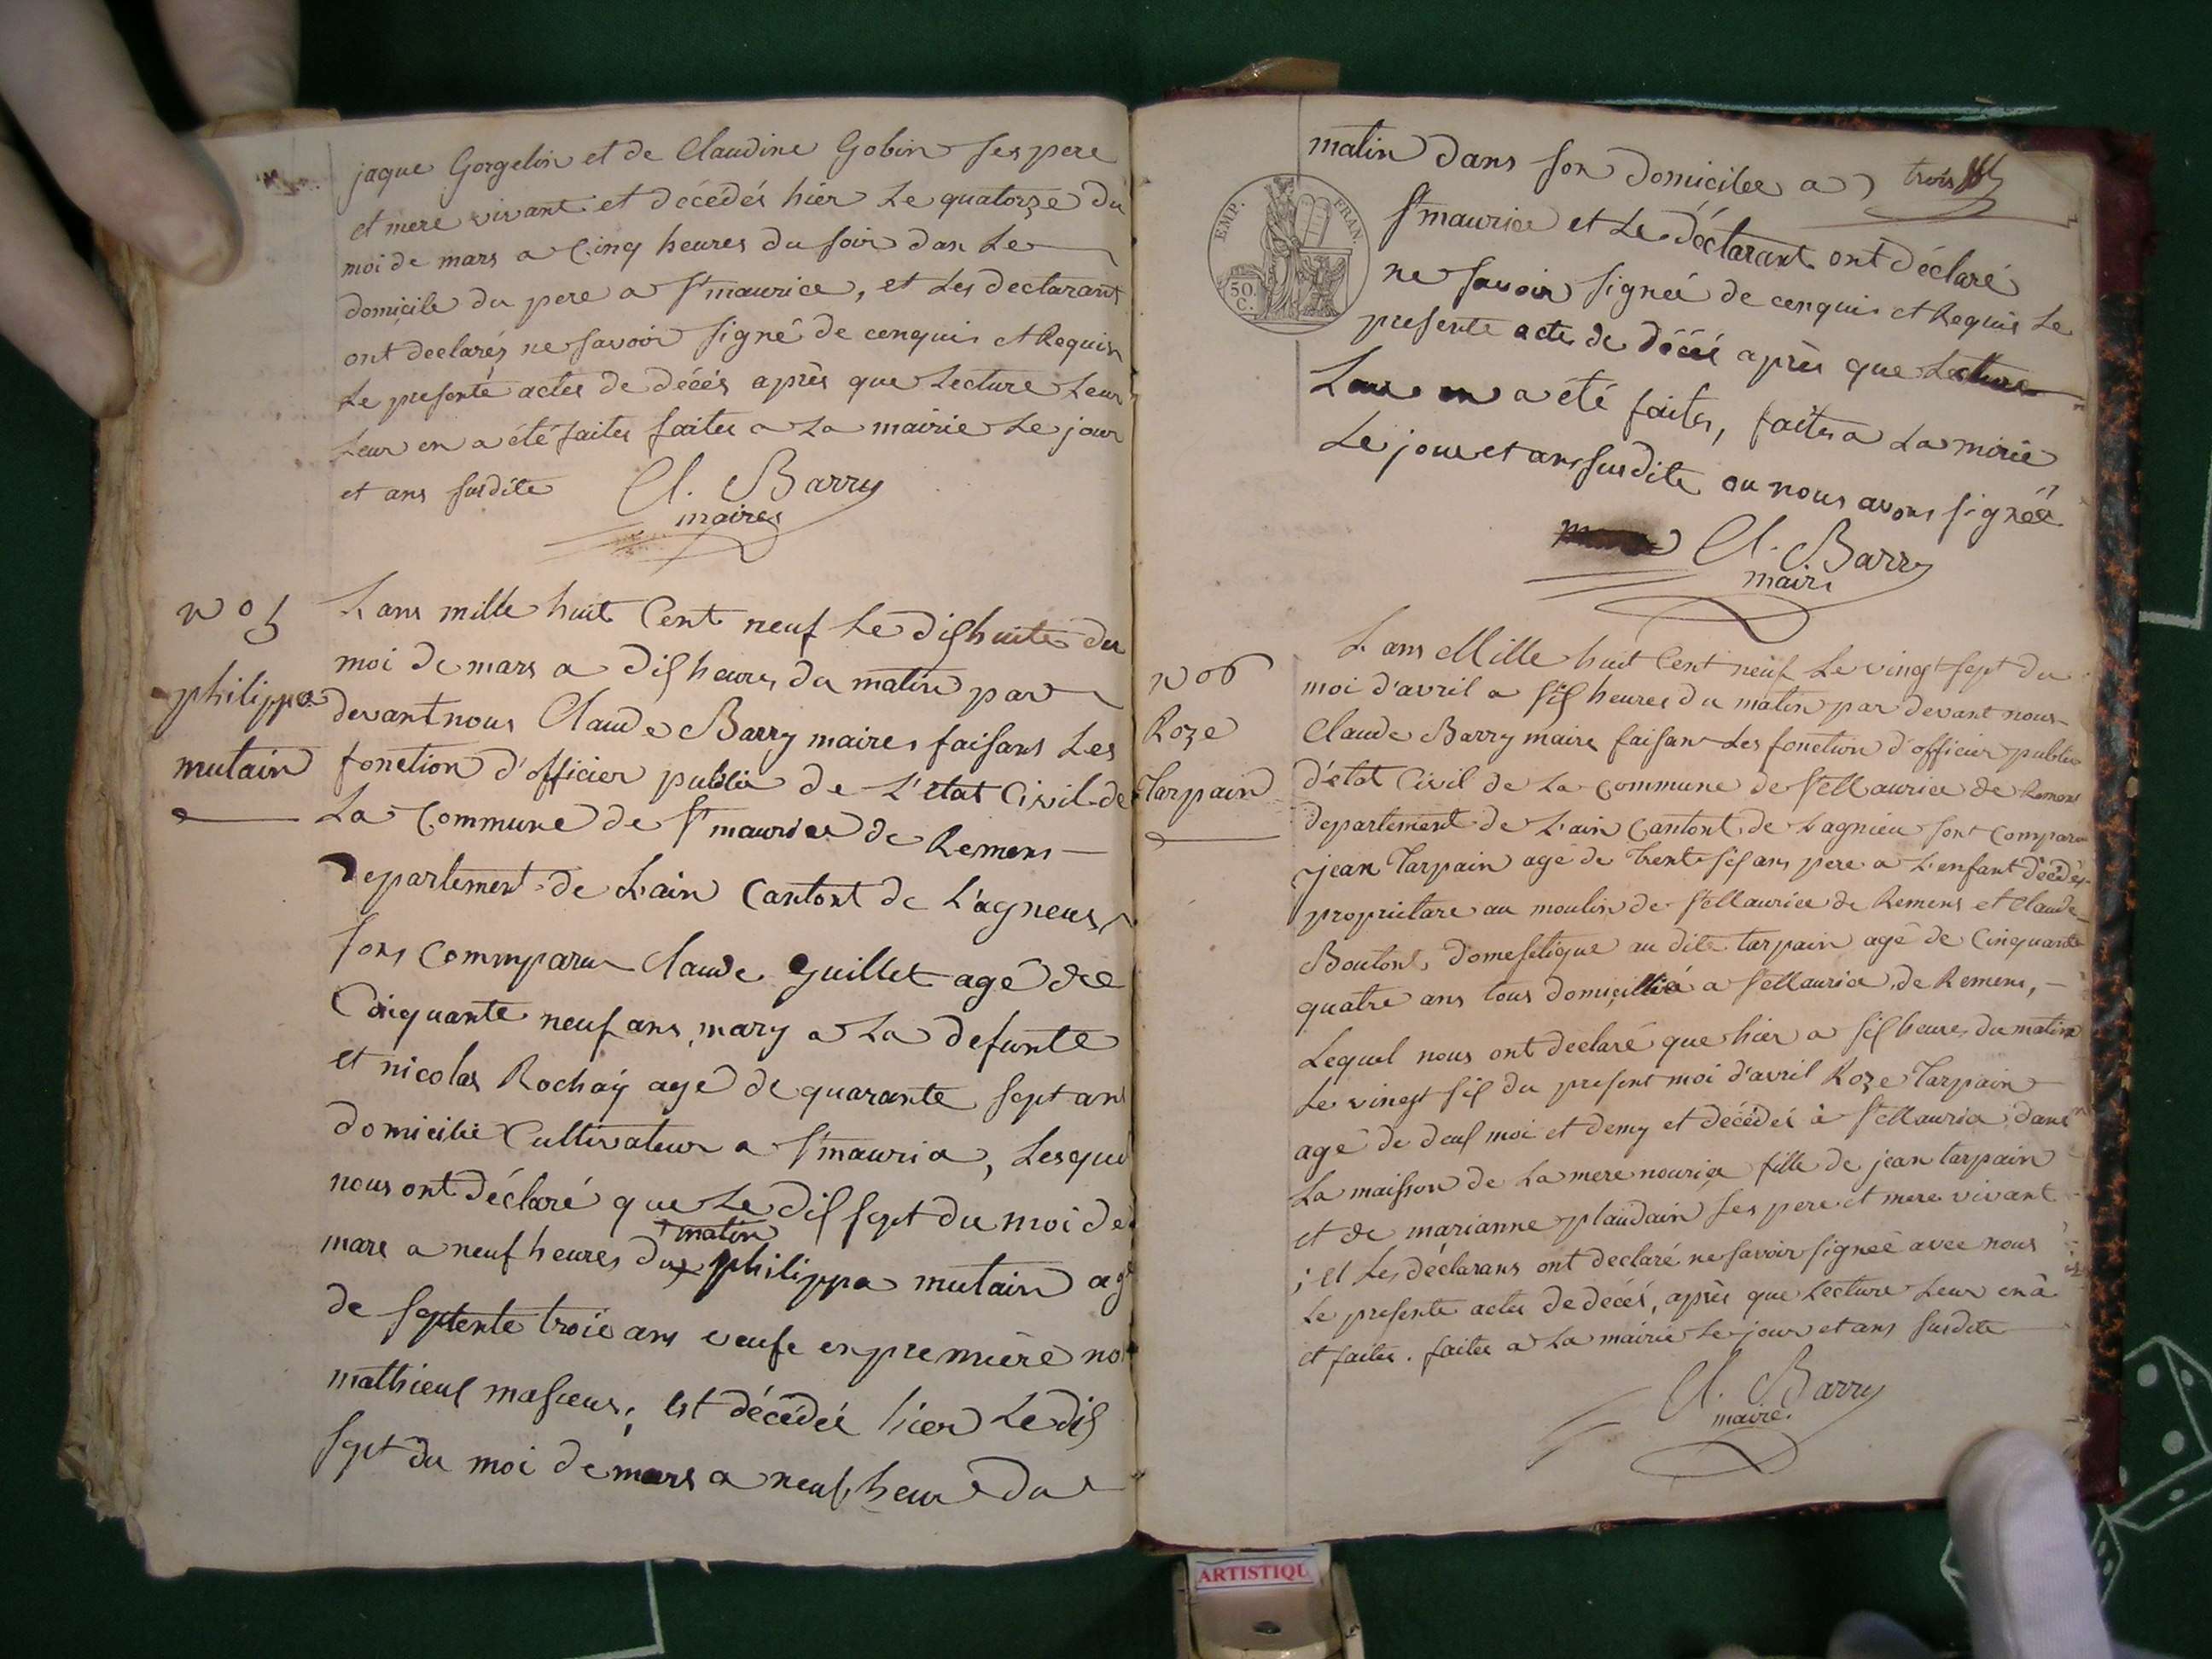 jaque Gorgelin et de Claudine Gobin ses pere
et mere vivant et décédés hier Le quatorze du
moi de mars a Cinq heures du soir dan Le
domicile du pere a St maurice, et Les declarant
ont declarés ne savoir signé de cenquis et Requis
Le presente actes de décés après que Lecture Leur
Leur en a été faites faites a La mairie Le jour
et ans susdite Cl. Barry
maires
N 05
philippa
mutain
L ans mille huit Cent neuf Le dishuite du
moi de mars a dis heures du matin par
devant nous Claude Barry maires faisans Les
fonction d'officier public de L'état Civil de
La Commune de St maurice de Remens
Departement de L'ain Cantont de L'agneus
sons Commparu Claude Guillet agé de
Cinquante neuf ans mary a La defunte
et nicolas Rochay agé de quarante sept ans
domicilié Cultivateur a St mauria, Lesquel
nous ont déclaré que Le dis sept du moi de
matin
mars a neuf heures du philippa mutain agé
de septente troie ans veufe en premiere no
mathieus masieus, est décédée hier Le dis
sept du moi de mars a neuf heur du
trois
matin dans son domicilee a
St maurice et Le déclarant ont déclaré
ne savoir signeé de cenquis et Requis Le
presente acte de décés après que Lecture
Leur en a été faites, faites a La mirie
Le jour et ans susdite ou nous avons signéé
Cl. Barry
maire
EMP. FRAN.
50 C.
N 06
Roze
Tarpain
L ans Mille huit Cent neuf Le vingt sept du
moi d'avril a sis heures du matin par devant nous
Claude Barry maire faisant Les fonction d'officier public
d'etat Civil de La Commune de St Maurice de Remens
departement de L'ain Cantont de Lagnieu sont Comparu
jean Tarpain agé de trente sis ans pere a L'enfant décédés
proprietare au moulin de St Maurice de Remens et Claude
Boutont, domestique au dite tarpain agé de Cinquante
quatre ans tous domicillié a St Mauria de Remens,
Lequel nous ont declaré que hier a sis heures du matin
Le vingt sis du present moi d'avril Roze Tarpain
agé de deus moi et demy et décédés à St Mauria dans
La maison de La mere nourice fille de jean tarpain
et de marianne plaudain ses pere et mere vivant
; et Les déclarans ont declaré ne savoir signeé avec nous
Le presente actes de décés, après que Lecture Leur en à
et faites. faites a La mairie Le jour et ans susdite
Cl. Barry
maire
ARTISTIQU